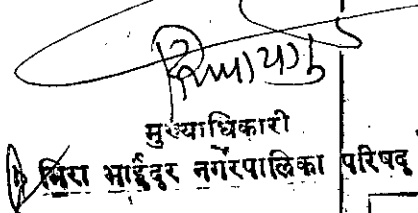 मुख्याधिकारी
मिरा भाईंदर नगरपालिका परिषद